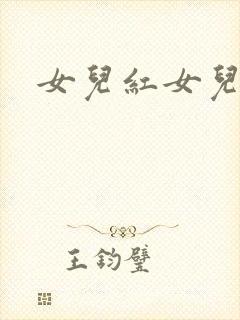 女兒紅女兒
王鈞璧